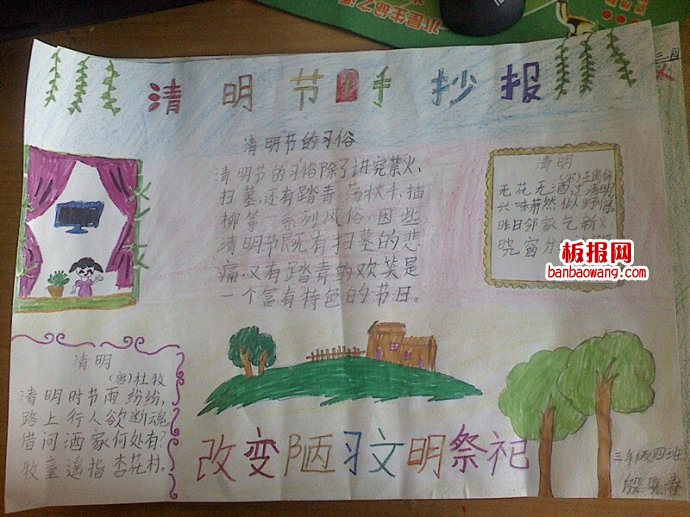 清明节手抄报
清明节的习俗
清明节的习俗除了讲究禁火、
扫墓,还有踏青、荡秋千、插
柳等一系列风俗,因些
清明节既有扫墓的悲
痛,又有踏青的欢笑是
一个富有特色的节日。
清明
(宋)王禹偁
无花无酒过清明
兴味萧然似野僧
昨日邻家乞新火
晓窗分
板报网
banbaowang.com
清明
(唐)杜牧
清明时节雨纷纷,
路上行人欲断魂
借问酒家何处有?
牧童遥指杏花村。
改变陋习文明祭祀
三年级四班